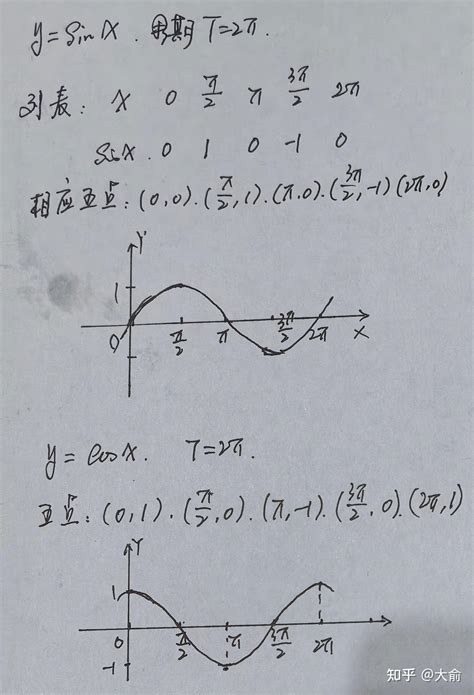 y=sinx. 周期 T=2π.
列表: x 0 π/2 π 3π/2 2π
sinx. 0 1 0 -1 0
相应五点: (0,0).(π/2,1).(π,0).(3π/2,-1)(2π,0)
Y
1
0 π/2 π 3π/2 2π X
y=cosx. T=2π.
五点: (0,1).(π/2,0).(π,-1).(3π/2,0).(2π,1)
Y
1
0 π/2 π 3π/2 2π
-1
知乎 @大俞